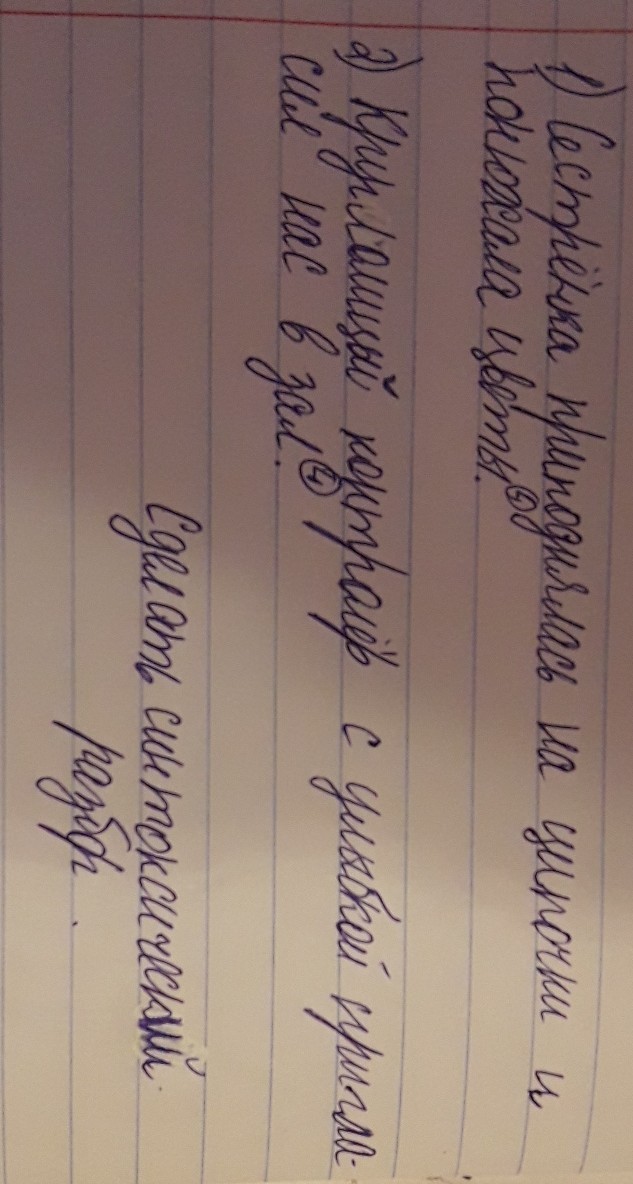 1) Сестрёнка приподнялась на цыпочки и
понюхала цветы.④
2) Круглолицый контролёр с улыбкой пригла-
сил нас в зал.④
Сделать синтоксический
разбор.